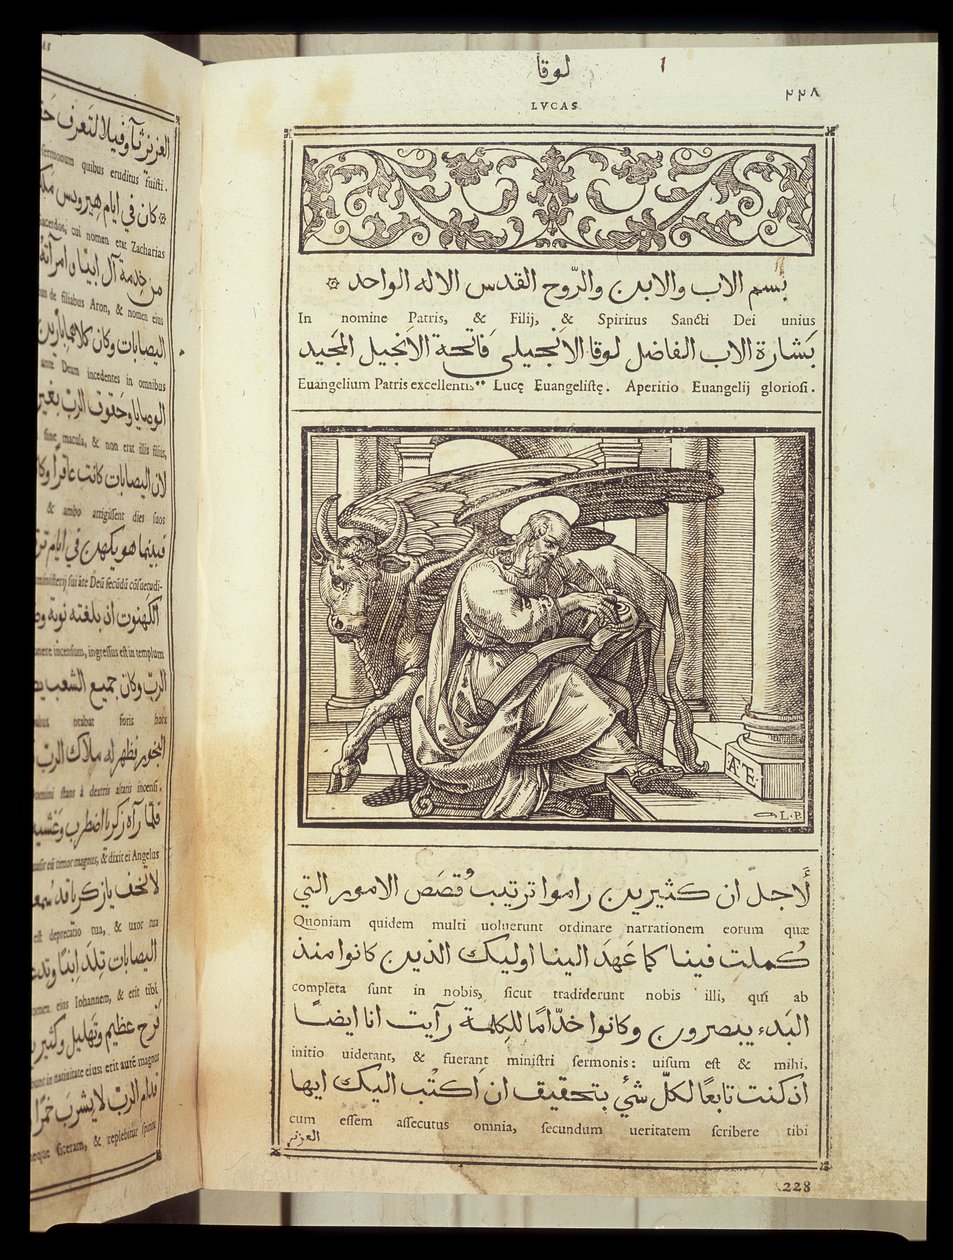 لوقا
١
٢٢٨
LVCAS
بسم الاب والابن والرّوح القدس الاله الواحد
In nomine Patris, & Filij, & Spiritus Sancti Dei unius
بَشارة الاب الفاضل لوقا الانجيلي فَاتحة الانجيل المجيد
Euangelium Patris excellentis Lucę Euangelistę. Aperitio Euangelij gloriosi.
AE.
L.P.
لَاجل ان كثيرين راموا ترتيب قصَص الامور التي
Quoniam quidem multi uoluerunt ordinare narrationem eorum quæ
كُملت فينا كما عَهدَ الينا اوليك الذين كانوا منذ
completa sunt in nobis, sicut tradiderunt nobis illi, qui ab
البَدء يبصرون وكانوا خدّامًا للكلمة رآيت انا ايضًا
initio uiderant, & fuerant ministri sermonis: uisum est & mihi,
اُذ كنت تابعًا لكلّ شئ بتحقيق ان اكتُب اليك ايها
cum essem assecutus omnia, secundum ueritatem scribere tibi
العزيز
228
العزيز ثآوفيلا لتعرف
sermonum quibus eruditus fuisti.
كان في ايام هيرودس
cui nomen erat Zacharias
من خدمة آل ابيّا وامرآته
de filiabus Aron, & nomen eius
اليصابات وكان كلاهما بارين
ante Deum incedentes in omnibus
الوصايا وحقوق الربّ بغير
sine macula, & non erat illis filius,
لان اليصابات كانت عاقرا
& ambo attigissent dies suos
فبينما هو يكهن في ايام
الكهنوت اذ بلغته نوبة
incensum, ingressus est in templum
الربّ وكان جميع الشعب
orabat foris hora
البخور فظهر له ملاك الربّ
stans à dextris altaris incensi.
فلمّا رآه زكريا اضطرب
timor magnus, & dixit ei Angelus
لا تخف يازكريا قد
est deprecatio tua, & uxor tua
اليصابات تلِدَ اِبنًا
eius Iohannem, & erit tibi
فرح عظيم وتهليل
in natiuitate eius erit autē magnus
قدام الربّ لا يشرَب خمرًا
siceram, & replebitur spiritu